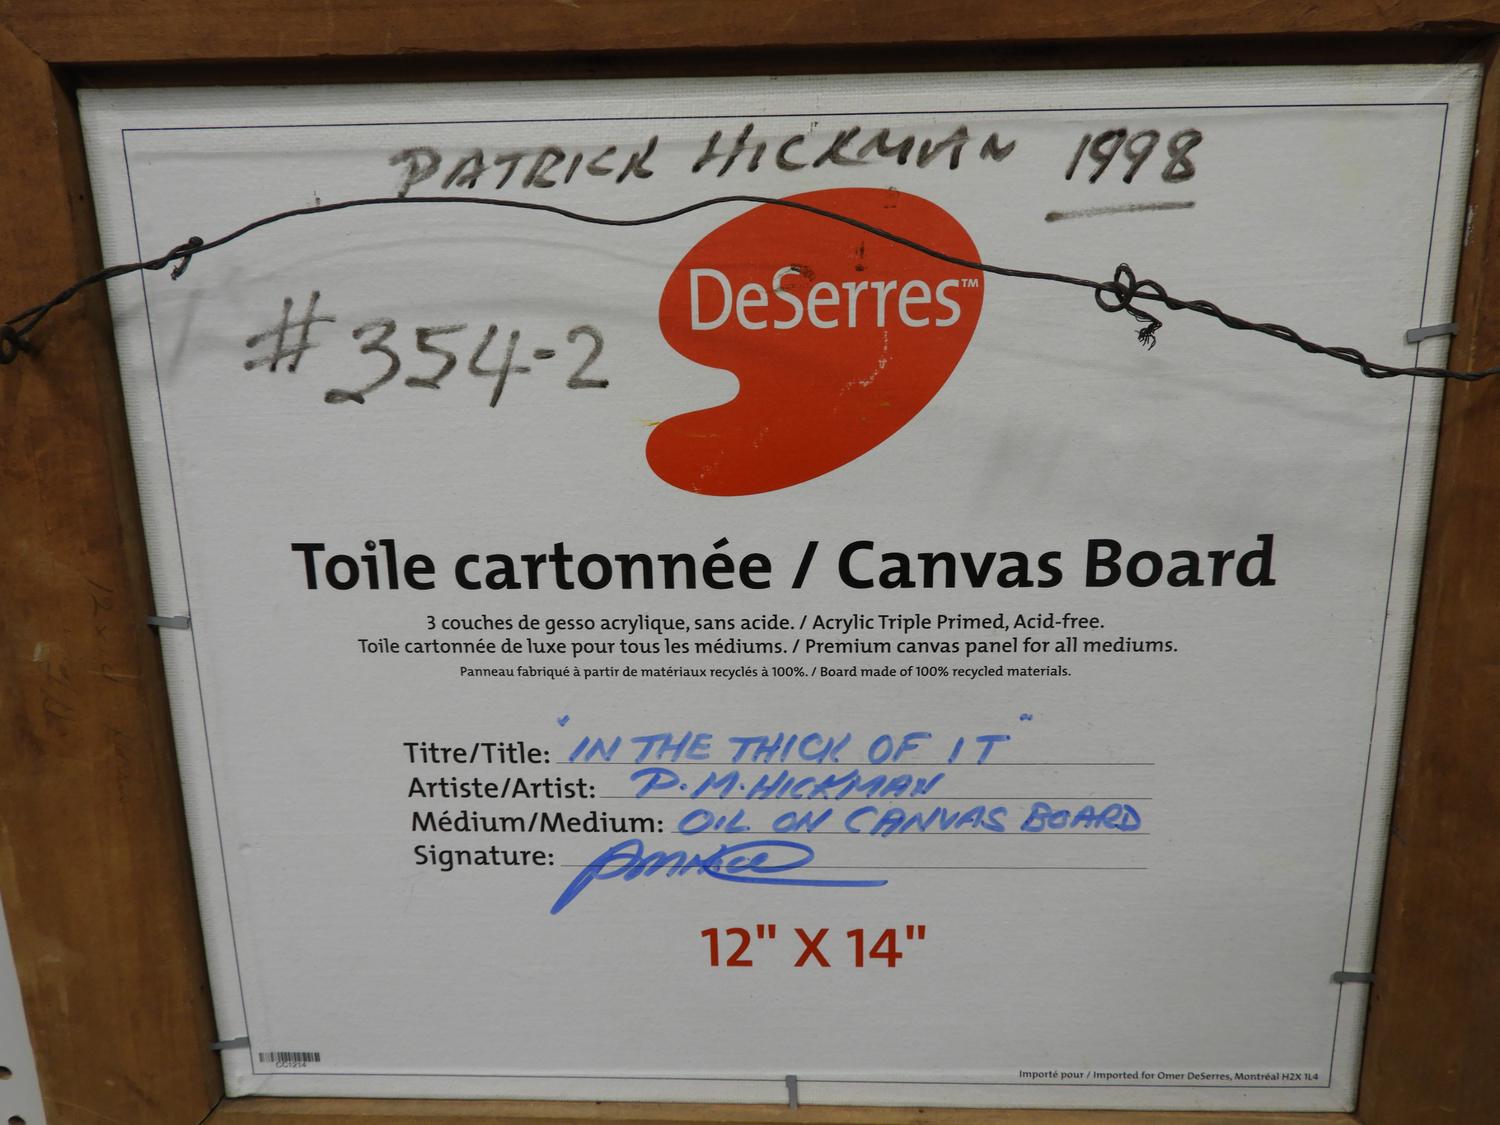 PATRICK HICKMAN 1998
DeSerres™
#354-2
Toile cartonnée / Canvas Board
3 couches de gesso acrylique, sans acide. / Acrylic Triple Primed, Acid-free.
Toile cartonnée de luxe pour tous les médiums. / Premium canvas panel for all mediums.
Panneau fabriqué à partir de matériaux recyclés à 100%. / Board made of 100% recycled materials.
Titre/Title: "IN THE THICK OF IT"
Artiste/Artist: P.M.HICKMAN
Médium/Medium: OIL ON CANVAS BOARD
Signature:
12" X 14"
CC1214
Importé pour / Imported for Omer DeSerres, Montréal H2X 1L4